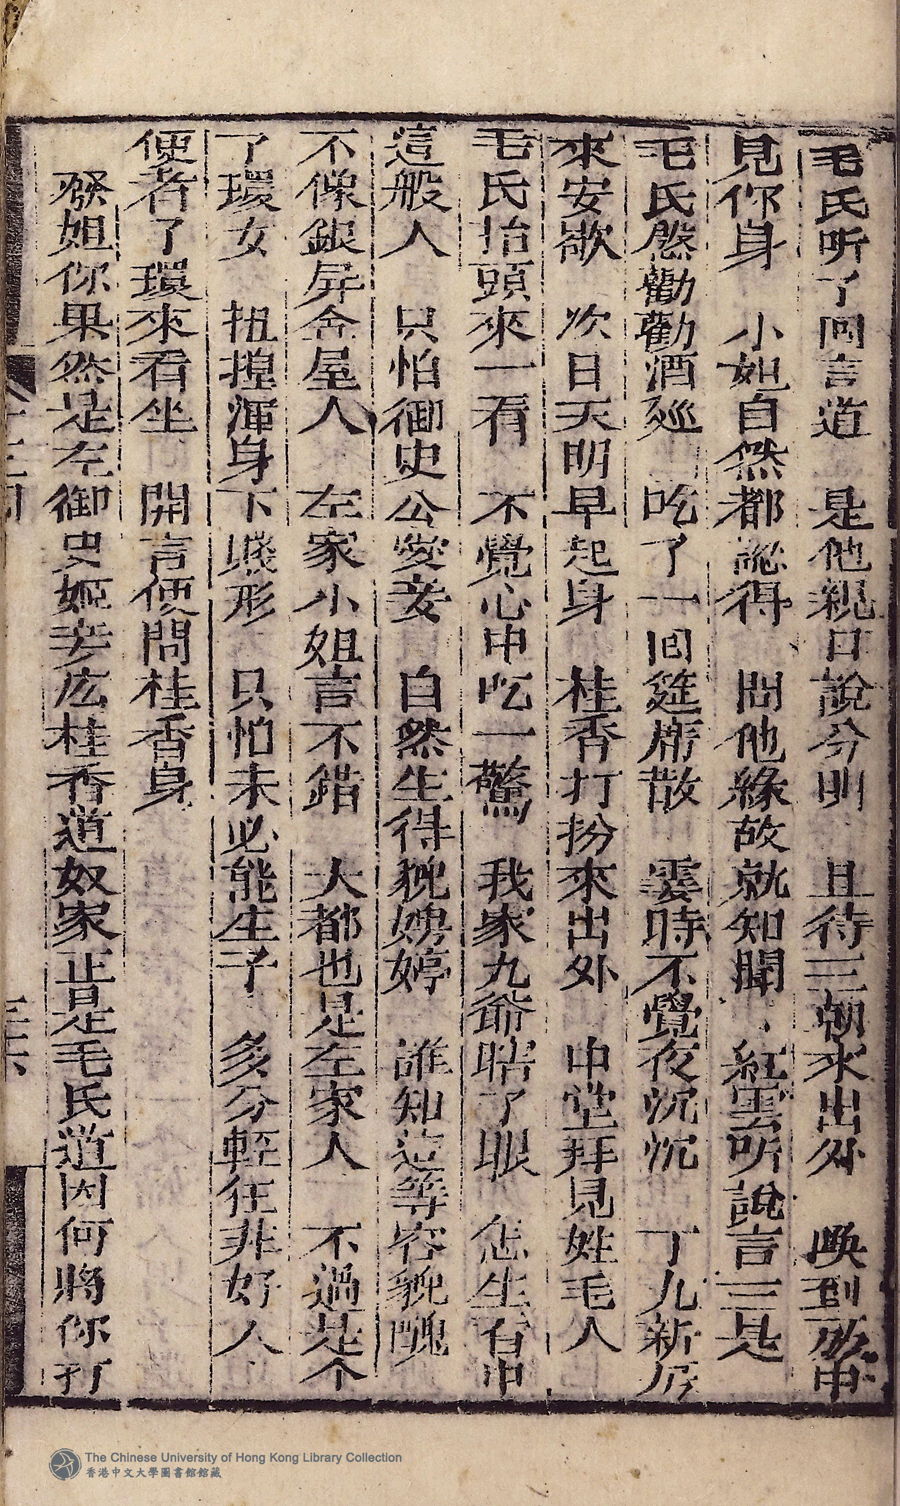 毛氏听了回言道　是他親口說分明　且待三朝來出外　喚到房中
見你身　小如自然都認得　問他緣故就知聞　紅雲听說言三是
毛氏慇勸勸酒廵　吃了一回筵席散　霎時不覺夜沉沉　丁九新房
來安歇　次日天明早起身　桂香打扮來出外　中堂拜見姓毛人
毛氏抬頭來一看　不覺心中吃一驚　我家九爺瞎了眼　怎生看中
這般人　只怕御史公愛妾　自然生得貌娉婷　誰知這等容貌醜
不像銀屏舍屋人　左家小姐言不錯　大都也是左家人　不過是个
了環女　扭揑渾身下賤形　只怕未必能生子　多分輕狂非好人
便者了環來看坐　開言便問桂香身
發姐你果然是左御史姬妾庅桂香道奴家正是毛氏道因何將你打
The Chinese University of Hong Kong Library Collection
香港中文大學圖書館館藏